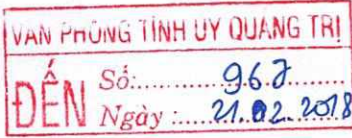 VĂN PHÒNG TỈNH ỦY QUẢNG TRỊ
ĐẾN
Số:............967......
Ngày :....21.02.2018